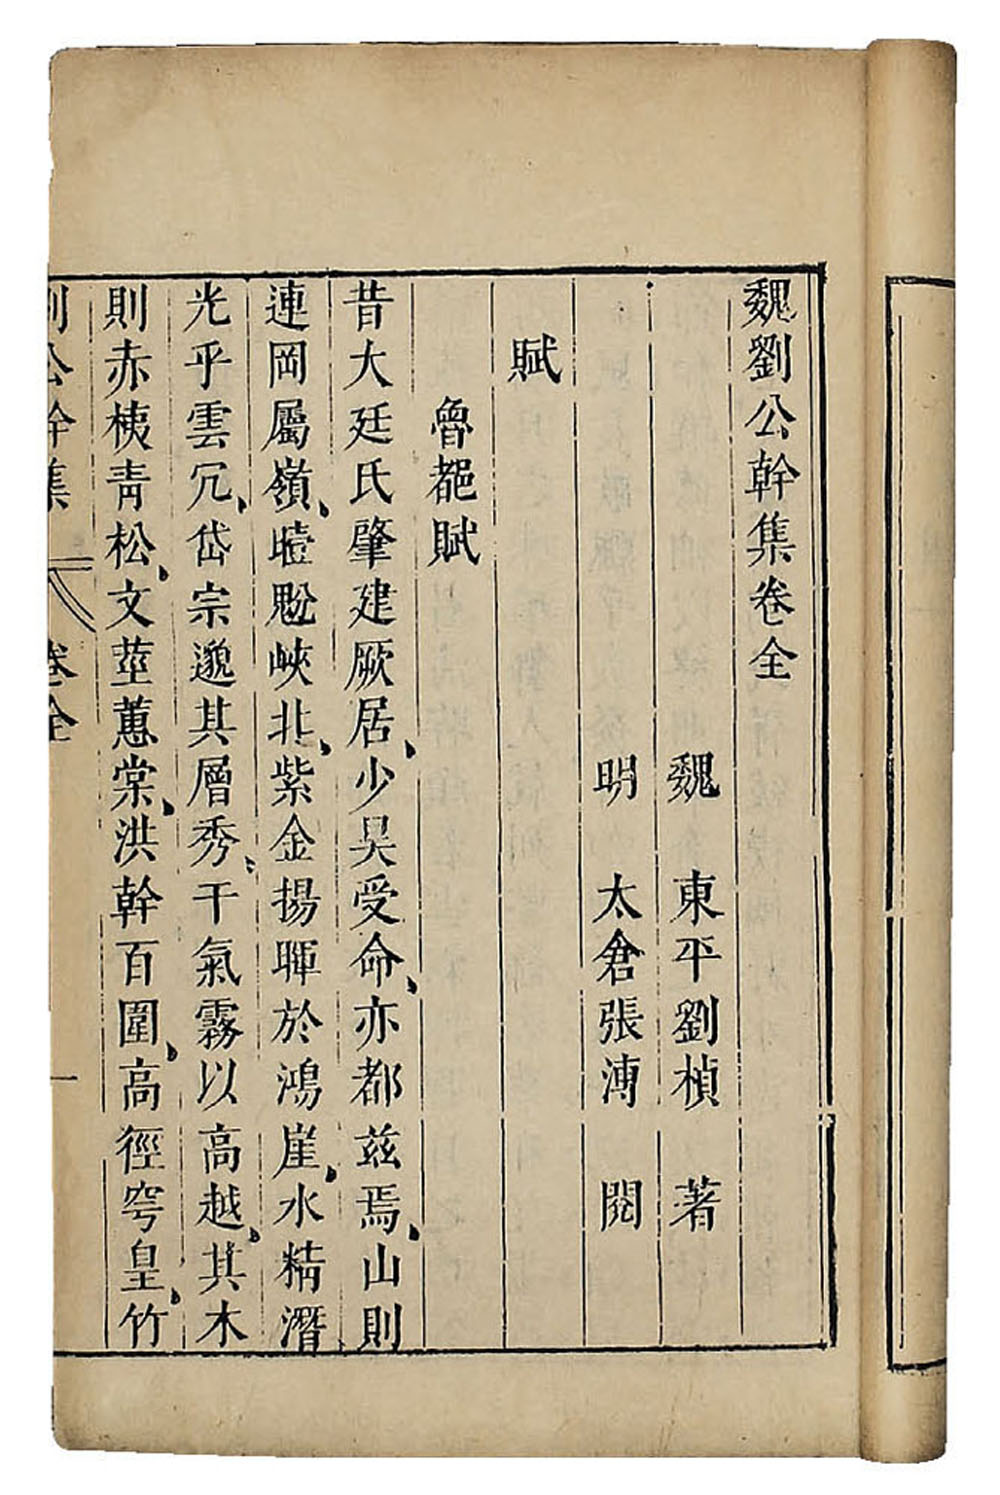 魏劉公幹集卷全
魏 東平劉楨 著
明 太倉張溥 閱
賦
魯都賦
昔大廷氏肇建厥居、少昊受命、亦都茲焉、山則
連岡屬嶺、曀魁峽北、紫金揚暉於鴻崖、水精潛
光乎雲冗、岱宗邈其層秀、干氣霧以高越、其木
則赤桋青松、文莖蕙棠、洪幹百圍、高徑穹皇、竹
劉公幹集 卷全 一